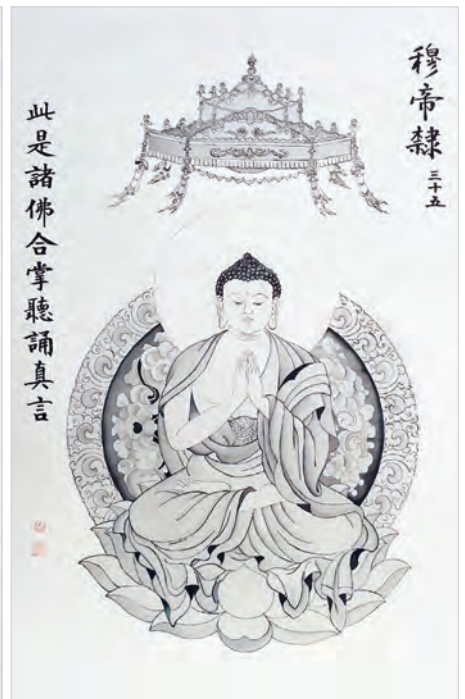 穆帝隸 三十五
此是諸佛合掌聽誦真言